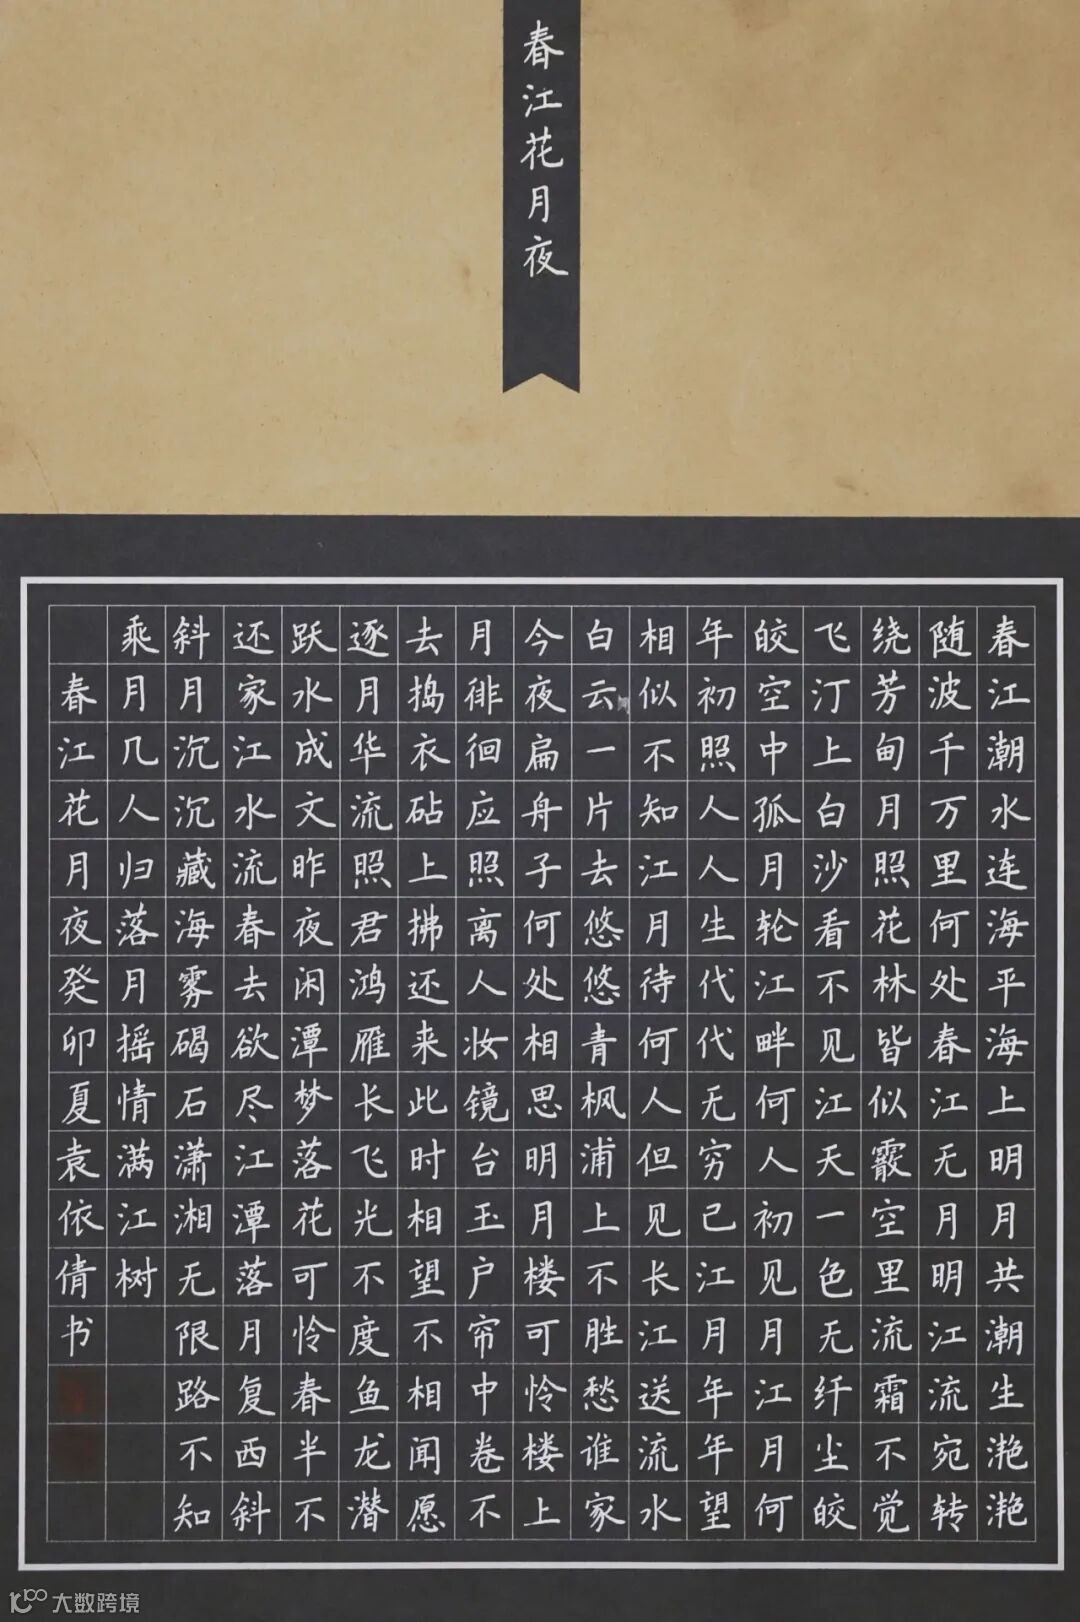 春江花月夜
春江潮水连海平海上明月共潮生滟滟
随波千万里何处春江无月明江流宛转
绕芳甸月照花林皆似霰空里流霜不觉
飞汀上白沙看不见江天一色无纤尘皎
皎空中孤月轮江畔何人初见月江月何
年初照人人生代代无穷已江月年年望
相似不知江月待何人但见长江送流水
白云一片去悠悠青枫浦上不胜愁谁家
今夜扁舟子何处相思明月楼可怜楼上
月徘徊应照离人妆镜台玉户帘中卷不
去捣衣砧上拂还来此时相望不相闻愿
逐月华流照君鸿雁长飞光不度鱼龙潜
跃水成文昨夜闲潭梦落花可怜春半不
还家江水流春去欲尽江潭落月复西斜
斜月沉沉藏海雾碣石潇湘无限路不知
乘月几人归落月摇情满江树
春江花月夜癸卯夏袁依倩书
大数跨境